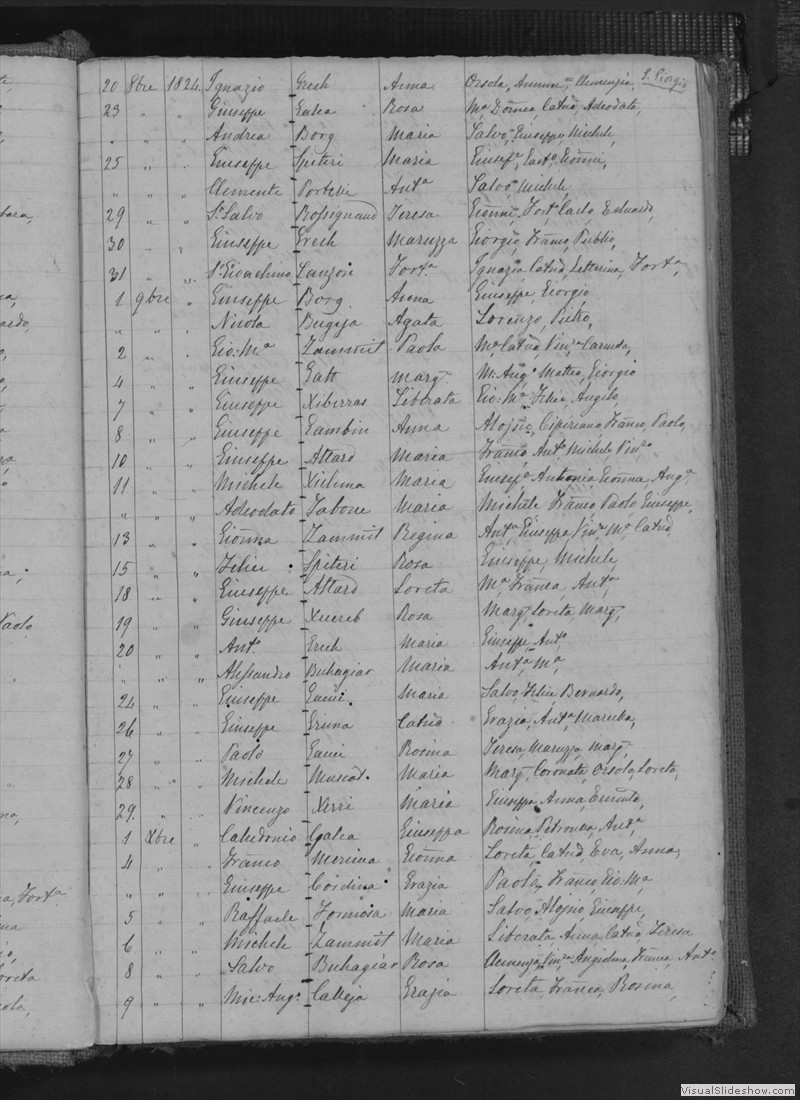 20 8bre 1824 Ignazio Grech Anna Orsola, Annun= Clemenzia, S. Giorgio
23 " " Giuseppe Galea Rosa Mª Domca, Catrina, Adeodata,
" " " Andrea Borg Maria Salvo, Giuseppe, Michele,
25 " " Giuseppe Spiteri Maria Giusepª, Gaetº,
" " " Clemente Portelli Antª Salvo, Michele,
29 " " Sr Salvo Rossignaud Teresa Carlo Eduardo,
30 " " Giuseppe Grech Maruzza Giorgio, Franco, Publio,
31 " " Sr Gioachino Lanzon Fortª Ignazia, Catrina, Letterina, Fortª,
1 9bre " Giuseppe Borg Anna Giuseppe, Giorgio
" " " Nicola Bugeja Agata Lorenzo, Pietro,
2 " " Gio: Mª Zammit Paola Mª Catrina, Vinª Carmela,
4 " " Giuseppe Gatt Marg. M: Angº Matteo, Giorgio
7 " " Giuseppe Xiberras Liberata Gio: Mª Felice, Angelo,
8 " " Giuseppe Cambin Anna Alojsio, Cipriano, Franco, Paolo,
10 " " Giuseppe Attard Maria Franco Antº Michele Vinzo
11 " " Michele Xicluna Maria Giusepª Antonia, Gionna, Angª
" " " Adeodato Tabone Maria Michele Franco Paolo, Giuseppe,
13 " " Gionna Zammit Regina Antª Giuseppa, Vinª Mª Catrina
15 " " Felice Spiteri Rosa Giuseppe, Michele,
18 " " Giuseppe Attard Loreta Mª Franca, Antª,
19 " " Giuseppe Xuereb Rosa Marg. Loreta, Marg,
20 " " Antº Grech Maria Giuseppe, Antº
" " " Alessandro Buhagiar Maria Antª Mª
24 " " Giuseppe Gauci Maria Salvo, Felice, Bernardo,
26 " " Giuseppe Grima Catrina Grazia, Antª
27 " " Paolo Gauci Rosina Teresa, Maruzza, Marg,
28 " " Michele Muscat Maria Marg, Coronata, Orsola, Loreta,
29 " " Vincenzo Xerri Maria Giuseppa, Anna,
1 Xbre " Calcedonio Galea Giuseppa Rosina, Petronilla, Antª
4 " " Franco Mercieca Gionna Loreta, Catrina, Eva, Anna,
" " " Giuseppe Cordina Grazia Paolo, Franco, Gio: Mª
5 " " Raffaele Formosa Maria Salvo, Alojsio, Giuseppe,
6 " " Michele Zammit Maria Liberata, Anna, Catrina, Teresa
8 " " Salvo Buhagiar Rosa Clemenza, Vinª Angiolina, Franca, Antª
9 " " Mic: Angº Calleja Grazia Loreta, Franca, Rosina,
VisualSlideshow.com